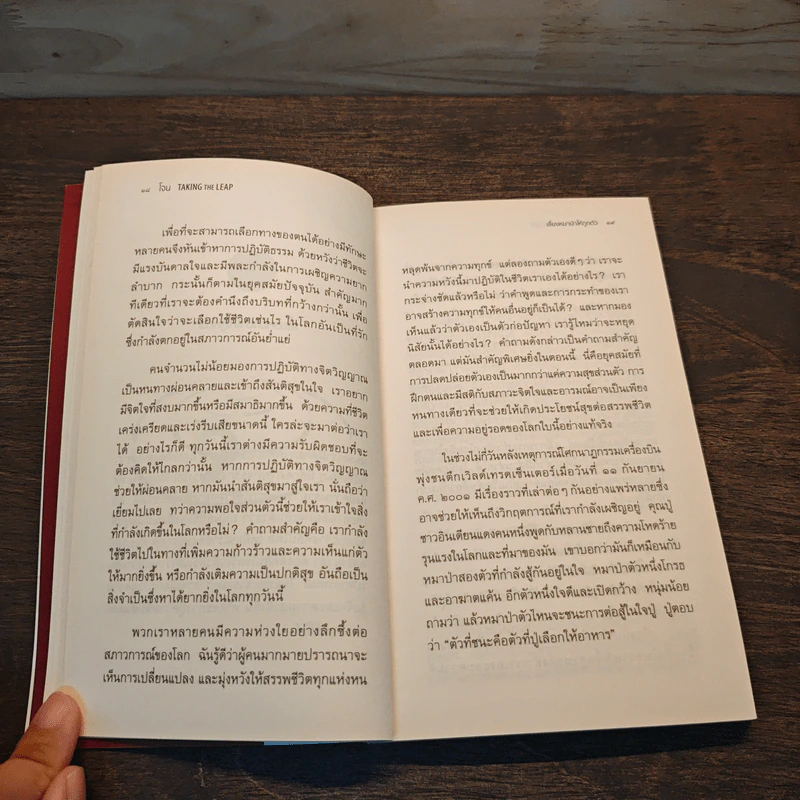 ๑๘ โจน TAKING THE LEAP
เพื่อที่จะสามารถเลือกทางของตนได้อย่างมีทักษะ
หลายคนจึงหันเข้าหาการปฏิบัติธรรม ด้วยหวังว่าชีวิตจะ
มีแรงบันดาลใจและมีพละกำลังในการเผชิญความยาก
ลำบาก กระนั้นก็ตามในยุคสมัยปัจจุบัน สำคัญมาก
ทีเดียวที่เราจะต้องคำนึงถึงบริบทที่กว้างกว่านั้น เพื่อ
ตัดสินใจว่าจะเลือกใช้ชีวิตเช่นไร ในโลกอันเป็นที่รัก
ซึ่งกำลังตกอยู่ในสภาวการณ์อันย่ำแย่
คนจำนวนไม่น้อยมองการปฏิบัติทางจิตวิญญาณ
เป็นหนทางผ่อนคลายและเข้าถึงสันติสุขในใจ เราอยาก
มีจิตใจที่สงบมากขึ้นหรือมีสมาธิมากขึ้น ด้วยความที่ชีวิต
เคร่งเครียดและเร่งรีบเสียขนาดนี้ ใครล่ะจะมาต่อว่าเรา
ได้ อย่างไรก็ดี ทุกวันนี้เราต่างมีความรับผิดชอบที่จะ
ต้องคิดให้ไกลกว่านั้น หากการปฏิบัติทางจิตวิญญาณ
ช่วยให้ผ่อนคลาย หากมันนำสันติสุขมาสู่ใจเรา นั่นถือว่า
เยี่ยมไปเลย ทว่าความพอใจส่วนตัวนี้ช่วยให้เราเข้าใจสิ่ง
ที่กำลังเกิดขึ้นในโลกหรือไม่? คำถามสำคัญคือ เรากำลัง
ใช้ชีวิตไปในทางที่เพิ่มความก้าวร้าวและความเห็นแก่ตัว
ให้มากยิ่งขึ้น หรือกำลังเติมความเป็นปกติสุข อันถือเป็น
สิ่งจำเป็นซึ่งหาได้ยากยิ่งในโลกทุกวันนี้
พวกเราหลายคนมีความห่วงใยอย่างลึกซึ้งต่อ
สภาวการณ์ของโลก ฉันรู้ดีว่าผู้คนมากมายปรารถนาจะ
เห็นการเปลี่ยนแปลง และมุ่งหวังให้สรรพชีวิตทุกแห่งหน
เลี้ยงหมาป่าให้ถูกตัว ๑๙
หลุดพ้นจากความทุกข์ แต่ลองถามตัวเองดีๆว่า เราจะ
นำความหวังนี้มาปฏิบัติในชีวิตเราเองได้อย่างไร? เรา
กระจ่างชัดแล้วหรือไม่ ว่าคำพูดและการกระทำของเรา
อาจสร้างความทุกข์ให้คนอื่นอยู่ก็เป็นได้? และหากมอง
เห็นแล้วว่าตัวเองเป็นตัวก่อปัญหา เรารู้ไหมว่าจะหยุด
นิสัยนั้นได้อย่างไร? คำถามดังกล่าวเป็นคำถามสำคัญ
ตลอดมา แต่มันสำคัญพิเศษยิ่งในตอนนี้ นี่คือยุคสมัยที่
การปลดปล่อยตัวเองเป็นมากกว่าแค่ความสุขส่วนตัว การ
ฝึกตนและมีสติกับสภาวะจิตใจและอารมณ์อาจเป็นเพียง
หนทางเดียวที่จะช่วยให้เกิดประโยชน์สุขต่อสรรพชีวิต
และเพื่อความอยู่รอดของโลกใบนี้อย่างแท้จริง
ในช่วงไม่กี่วันหลังเหตุการณ์โศกนาฏกรรมเครื่องบิน
พุ่งชนตึกเวิลด์เทรดเซ็นเตอร์เมื่อวันที่ ๑๑ กันยายน
ค.ศ. ๒๐๐๑ มีเรื่องราวที่เล่าต่อๆกันอย่างแพร่หลายซึ่ง
อาจช่วยให้เห็นถึงวิกฤตการณ์ที่เรากำลังเผชิญอยู่ คุณปู่
ชาวอินเดียนแดงคนหนึ่งพูดกับหลานชายถึงความโหดร้าย
รุนแรงในโลกและที่มาของมัน เขาบอกว่ามันก็เหมือนกับ
หมาป่าสองตัวที่กำลังสู้กันอยู่ในใจ หมาป่าตัวหนึ่งโกรธ
และอาฆาตแค้น อีกตัวหนึ่งใจดีและเปิดกว้าง หนุ่มน้อย
ถามว่า แล้วหมาป่าตัวไหนจะชนะการต่อสู้ในใจปู่ ปู่ตอบ
ว่า “ตัวที่ชนะคือตัวที่ปู่เลือกให้อาหาร”